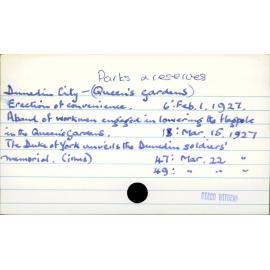 Parks & reserves
Dunedin City - (Queen's gardens)
Erection of convenience. 6: Feb. 1. 1927.
A band of workmen engaged in lowering the flagpole
in the Queen's gardens. 18: Mar. 15. 1927
The Duke of York unveils the Dunedin soldiers'
memorial. (illus) 47: Mar. 22 "
49: " " "